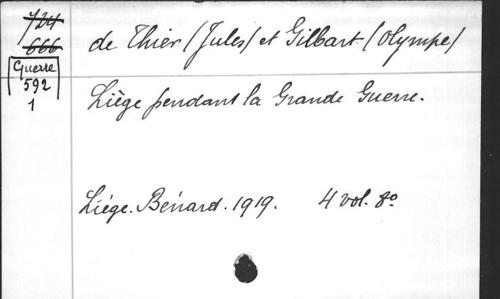 724
666
Guerre
592
1
de Thier (Jules) et Gilbart (Olympe)
Liège pendant la Grande Guerre.
Liége. Bénard. 1919. 4 vol. 8º